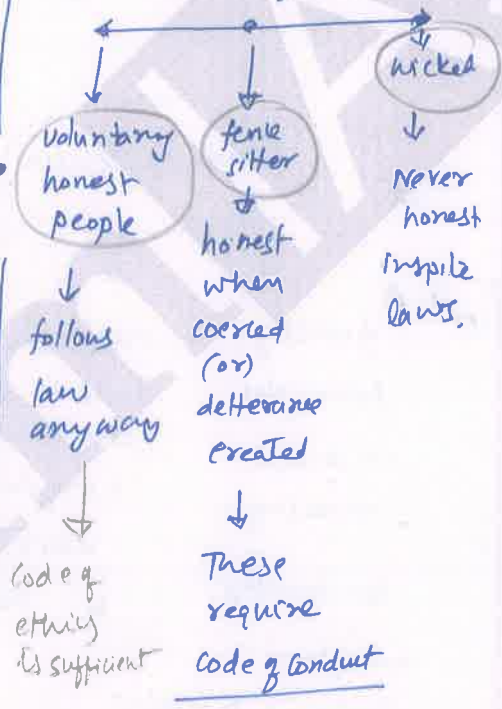 voluntary
honest
people
follows
law
anyway
Code of
ethics
is sufficient
fence
sitter
honest
when
coerced
(or)
detterance
created
These
require
Code of Conduct
wicked
Never
honest
inspite
laws.